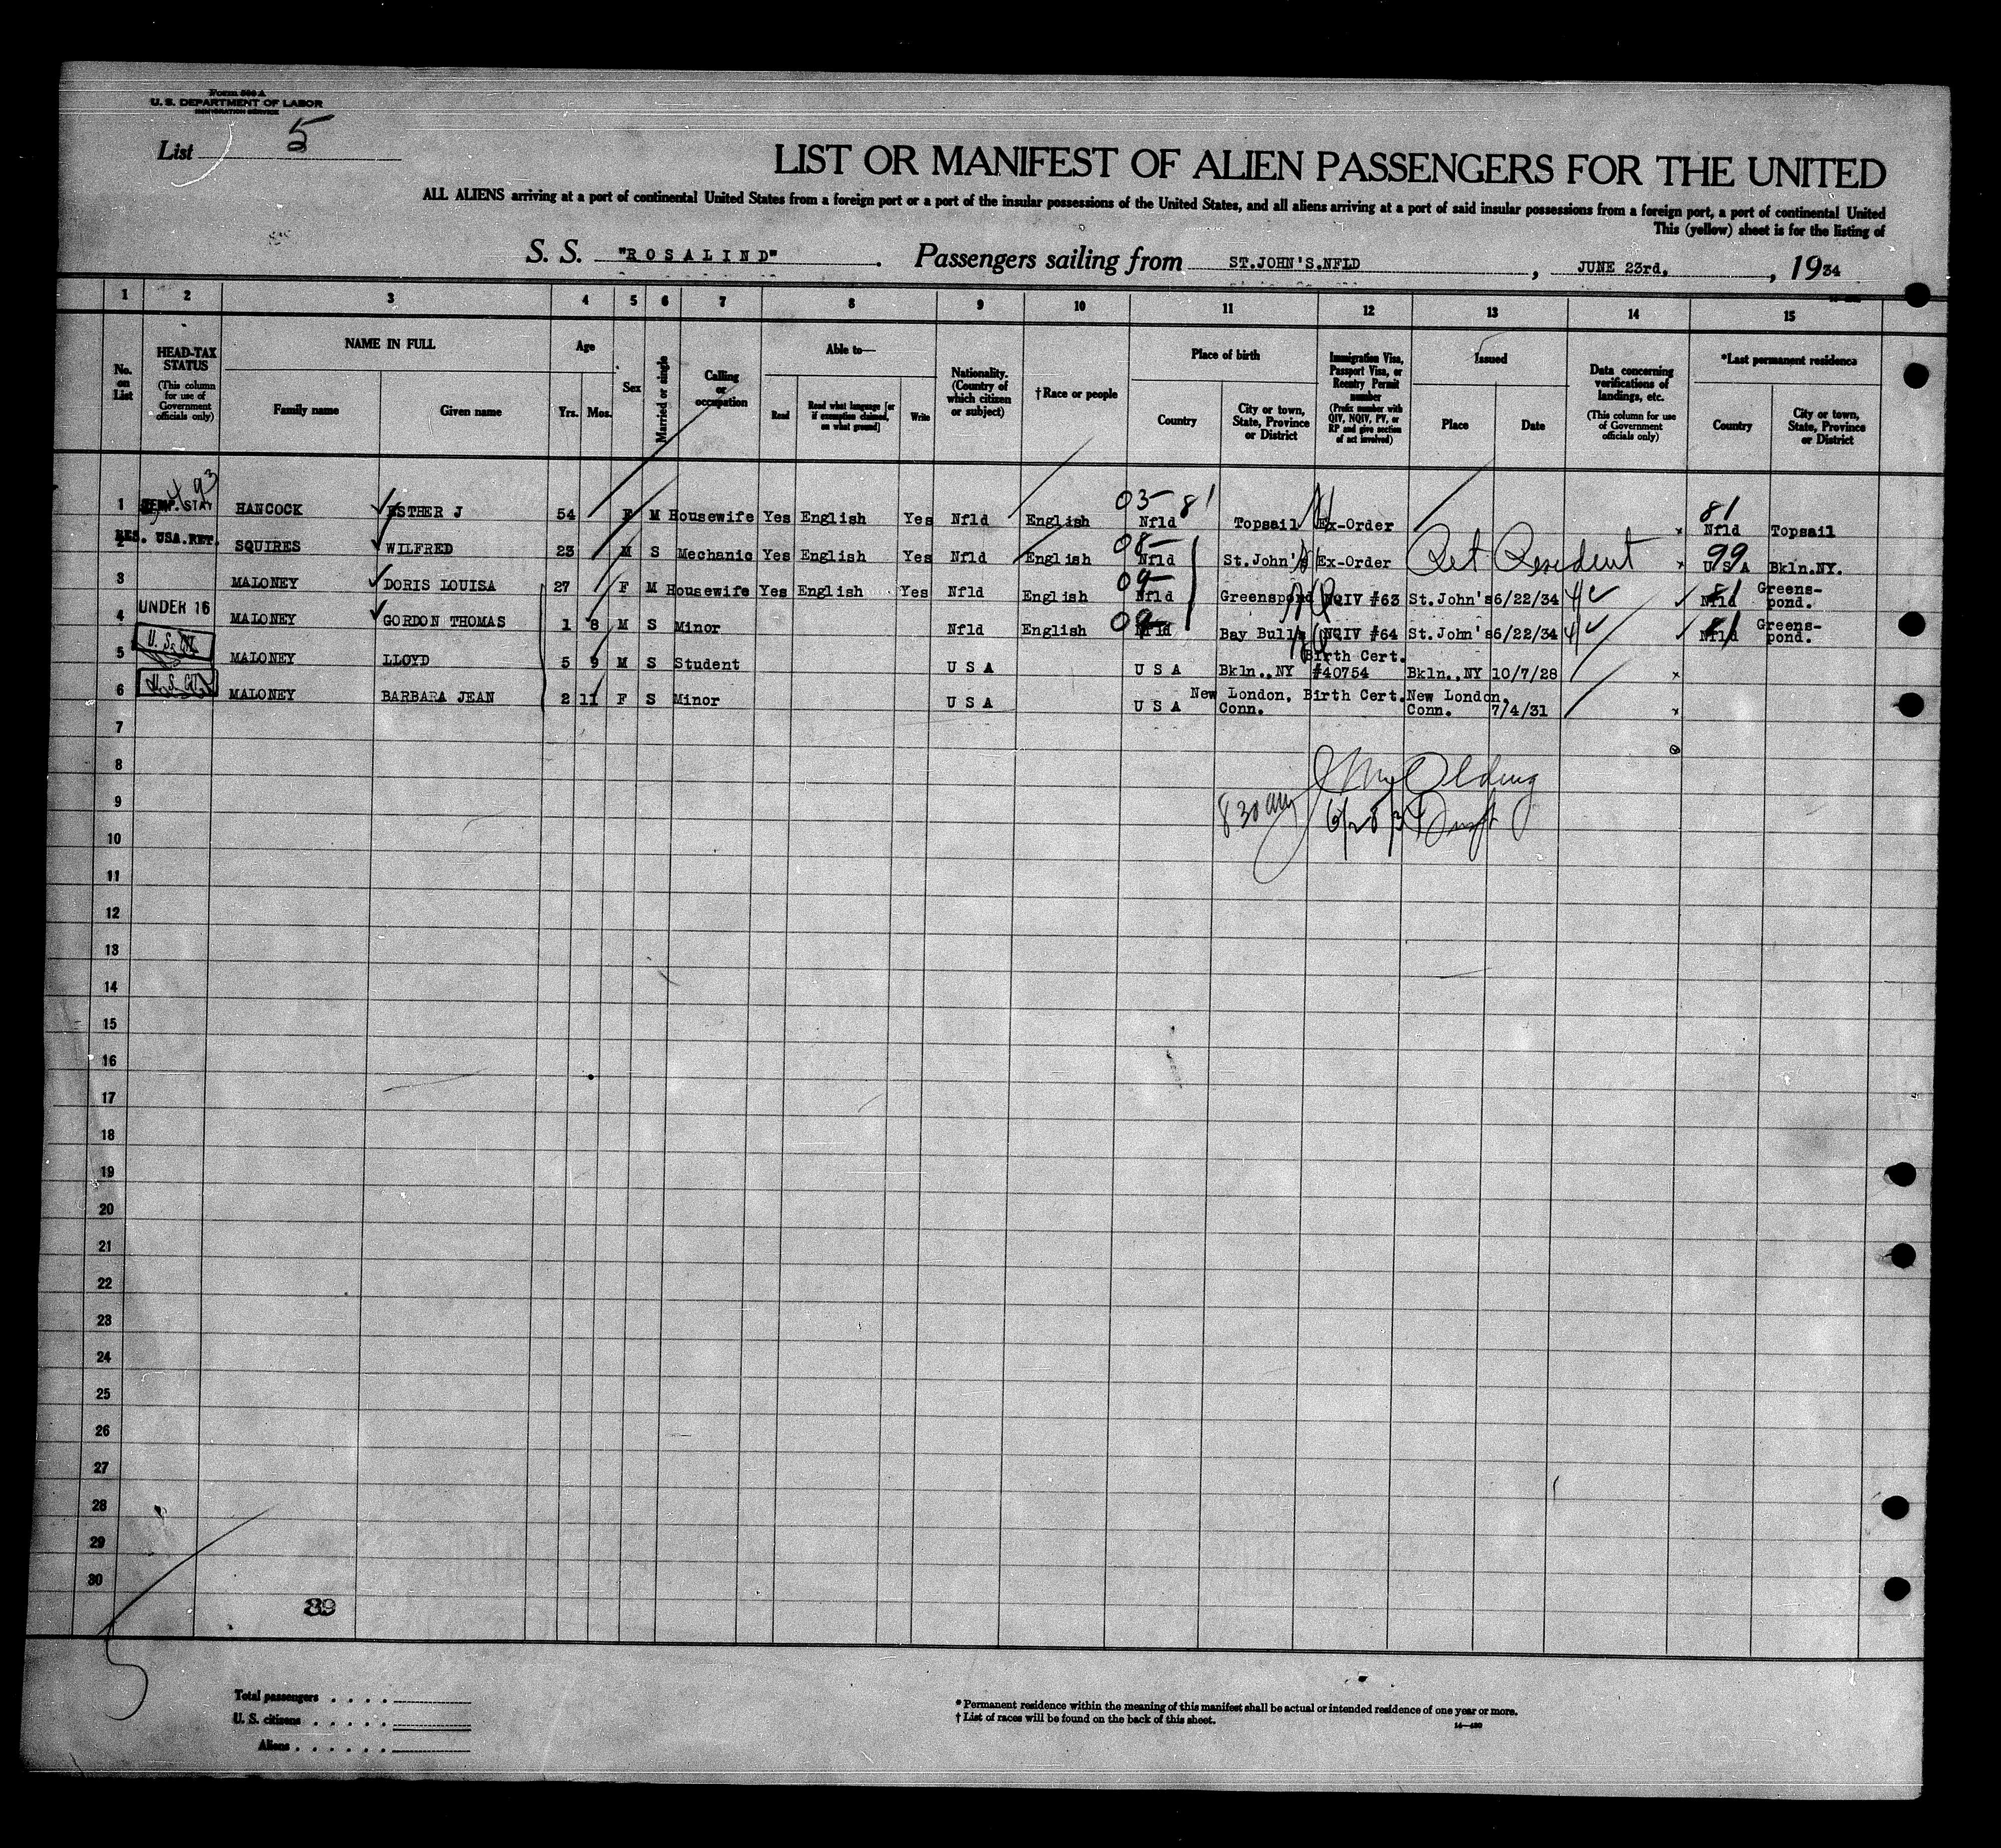 Form 500 A
U. S. DEPARTMENT OF LABOR
IMMIGRATION SERVICE
List 5
LIST OR MANIFEST OF ALIEN PASSENGERS FOR THE UNITED
ALL ALIENS arriving at a port of continental United States from a foreign port or a port of the insular possessions of the United States, and all aliens arriving at a port of said insular possessions from a foreign port, a port of continental United
This (yellow) sheet is for the listing of
S. S. "ROSALIND". Passengers sailing from ST.JOHN'S.NFLD, JUNE 23rd., 1934
1 2 3 4 5 6 7 8 9 10 11 12 13 14 15
No. on List
HEAD-TAX STATUS (This column for use of Government officials only)
NAME IN FULL
Family name
Given name
Age
Yrs. Mos.
Sex
Married or single
Calling or occupation
Able to—
Read
Read what language [or if exemption claimed, on what ground]
Write
Nationality. (Country of which citizen or subject)
†Race or people
Place of birth
Country
City or town, State, Province or District
Immigration Visa, Passport Visa, or Reentry Permit number (Prefix number with QIV, NQIV, PV, or RP and give section of act involved)
Issued
Place
Date
Data concerning verifications of landings, etc. (This column for use of Government officials only)
*Last permanent residence
Country
City or town, State, Province or District
93
03- 81 81
1 TEMP. STAY HANCOCK ESTHER J 54 F M Housewife Yes English Yes Nfld English Nfld Topsail Ex-Order x Nfld Topsail
08- 99
2 RES. USA.RET. SQUIRES WILFRED 23 M S Mechanic Yes English Yes Nfld English Nfld St.John's Ex-Order Ret Resident x U S A Bkln.NY.
09- 81
3 MALONEY DORIS LOUISA 27 F M Housewife Yes English Yes Nfld English Nfld Greenspond NQIV #63 St.John's 6/22/34 Nfld Greens-pond.
09- 81
4 UNDER 16 MALONEY GORDON THOMAS 1 8 M S Minor Nfld English Nfld Bay Bulls NQIV #64 St.John's 6/22/34 Nfld Greens-pond.
5 U. S. CIT. MALONEY LLOYD 5 9 M S Student U S A U S A Bkln.,NY Birth Cert. #40754 Bkln.,NY 10/7/28 x
6 U. S. CIT. MALONEY BARBARA JEAN 2 11 F S Minor U S A U S A New London, Conn. Birth Cert. New London, Conn. 7/4/31 x
7
8
9
8 30 am 6/28/34
10
11
12
13
14
15
16
17
18
19
20
21
22
23
24
25
26
27
28
29
30
39
Total passengers . . . .
U. S. citizens . . . . .
Aliens . . . . . .
* Permanent residence within the meaning of this manifest shall be actual or intended residence of one year or more.
† List of races will be found on the back of this sheet.